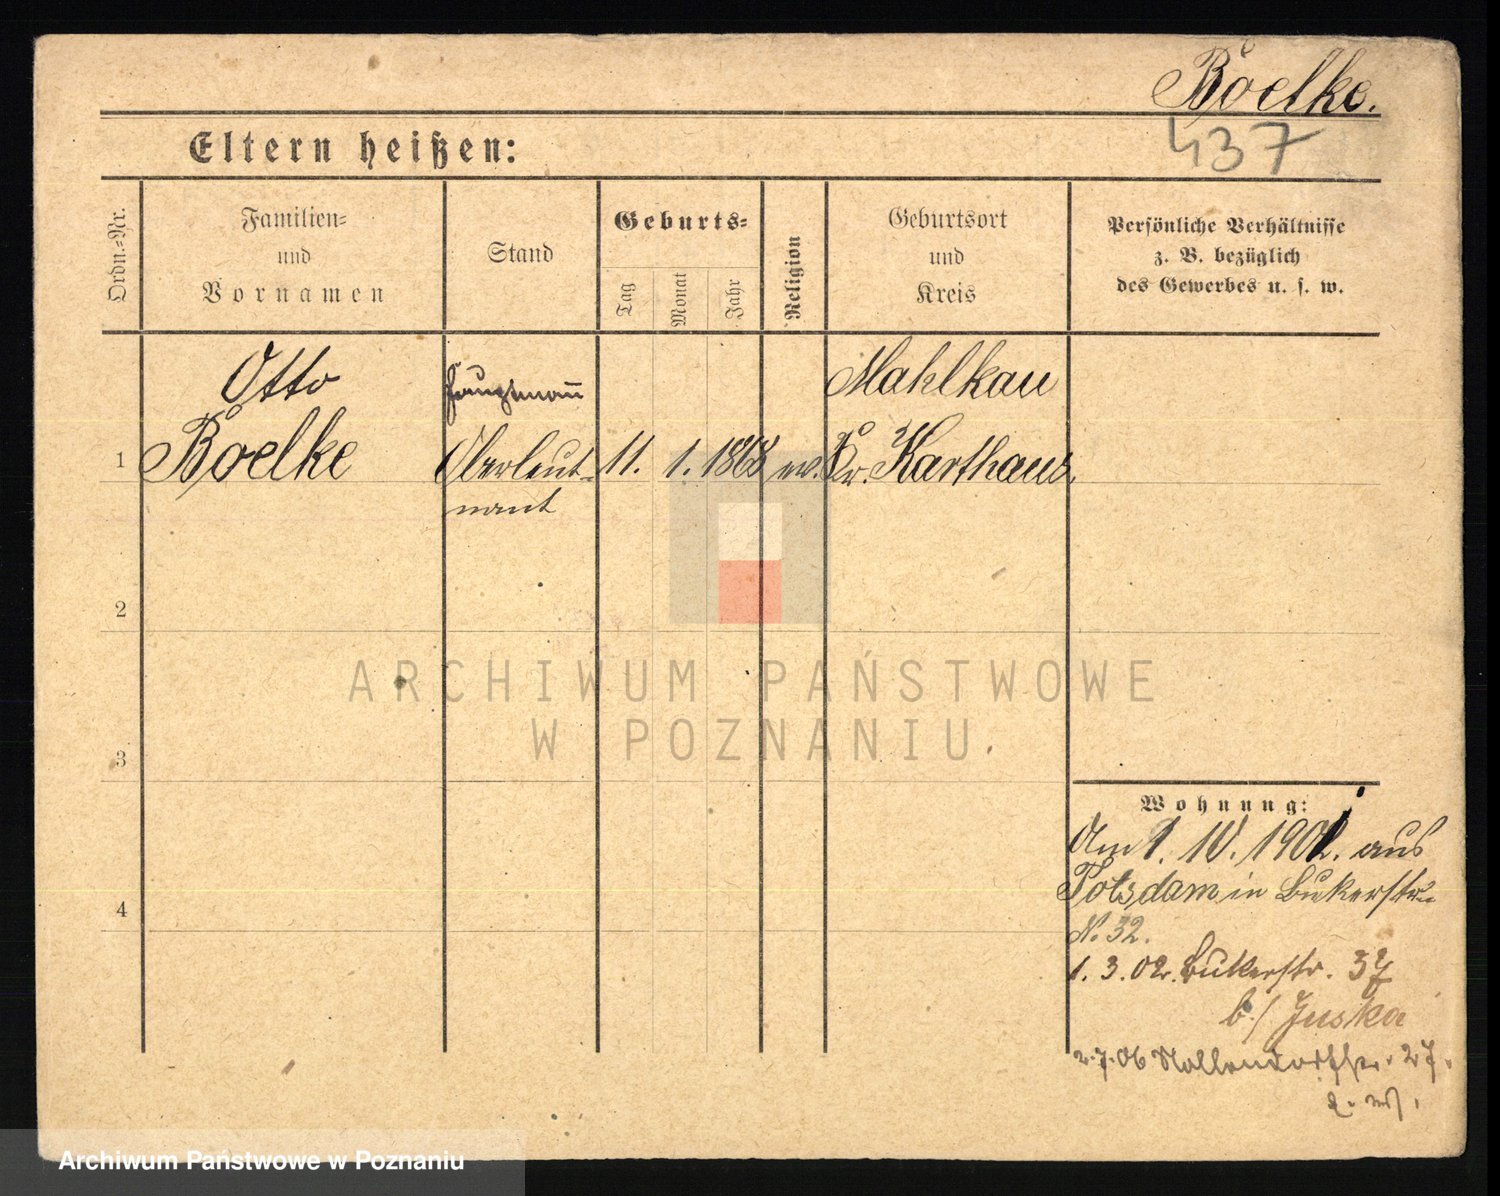 Boelke.
437
Eltern heißen:
Ordn.=Nr.
Familien=
und
Vornamen
Stand
Geburts=
Tag
Monat
Jahr
Religion
Geburtsort
und
Kreis
Persönliche Verhältnisse
z. B. bezüglich
des Gewerbes u. s. w.
Otto
Hauptmann
Mahlkau
1 Boelke Oberleut- 11. 1. 1868 ev. Kr. Karthaus,
nant
2
3
4
Wohnung:
Am 1. IV. 1901. aus
Potsdam in Bukerstr.
N. 32.
1. 3. 02. Bukerstr. 37
b./ Juska
2.7.06 Nollendorfstr. 27.
ARCHIWUM PAŃSTWOWE
W POZNANIU
Archiwum Państwowe w Poznaniu